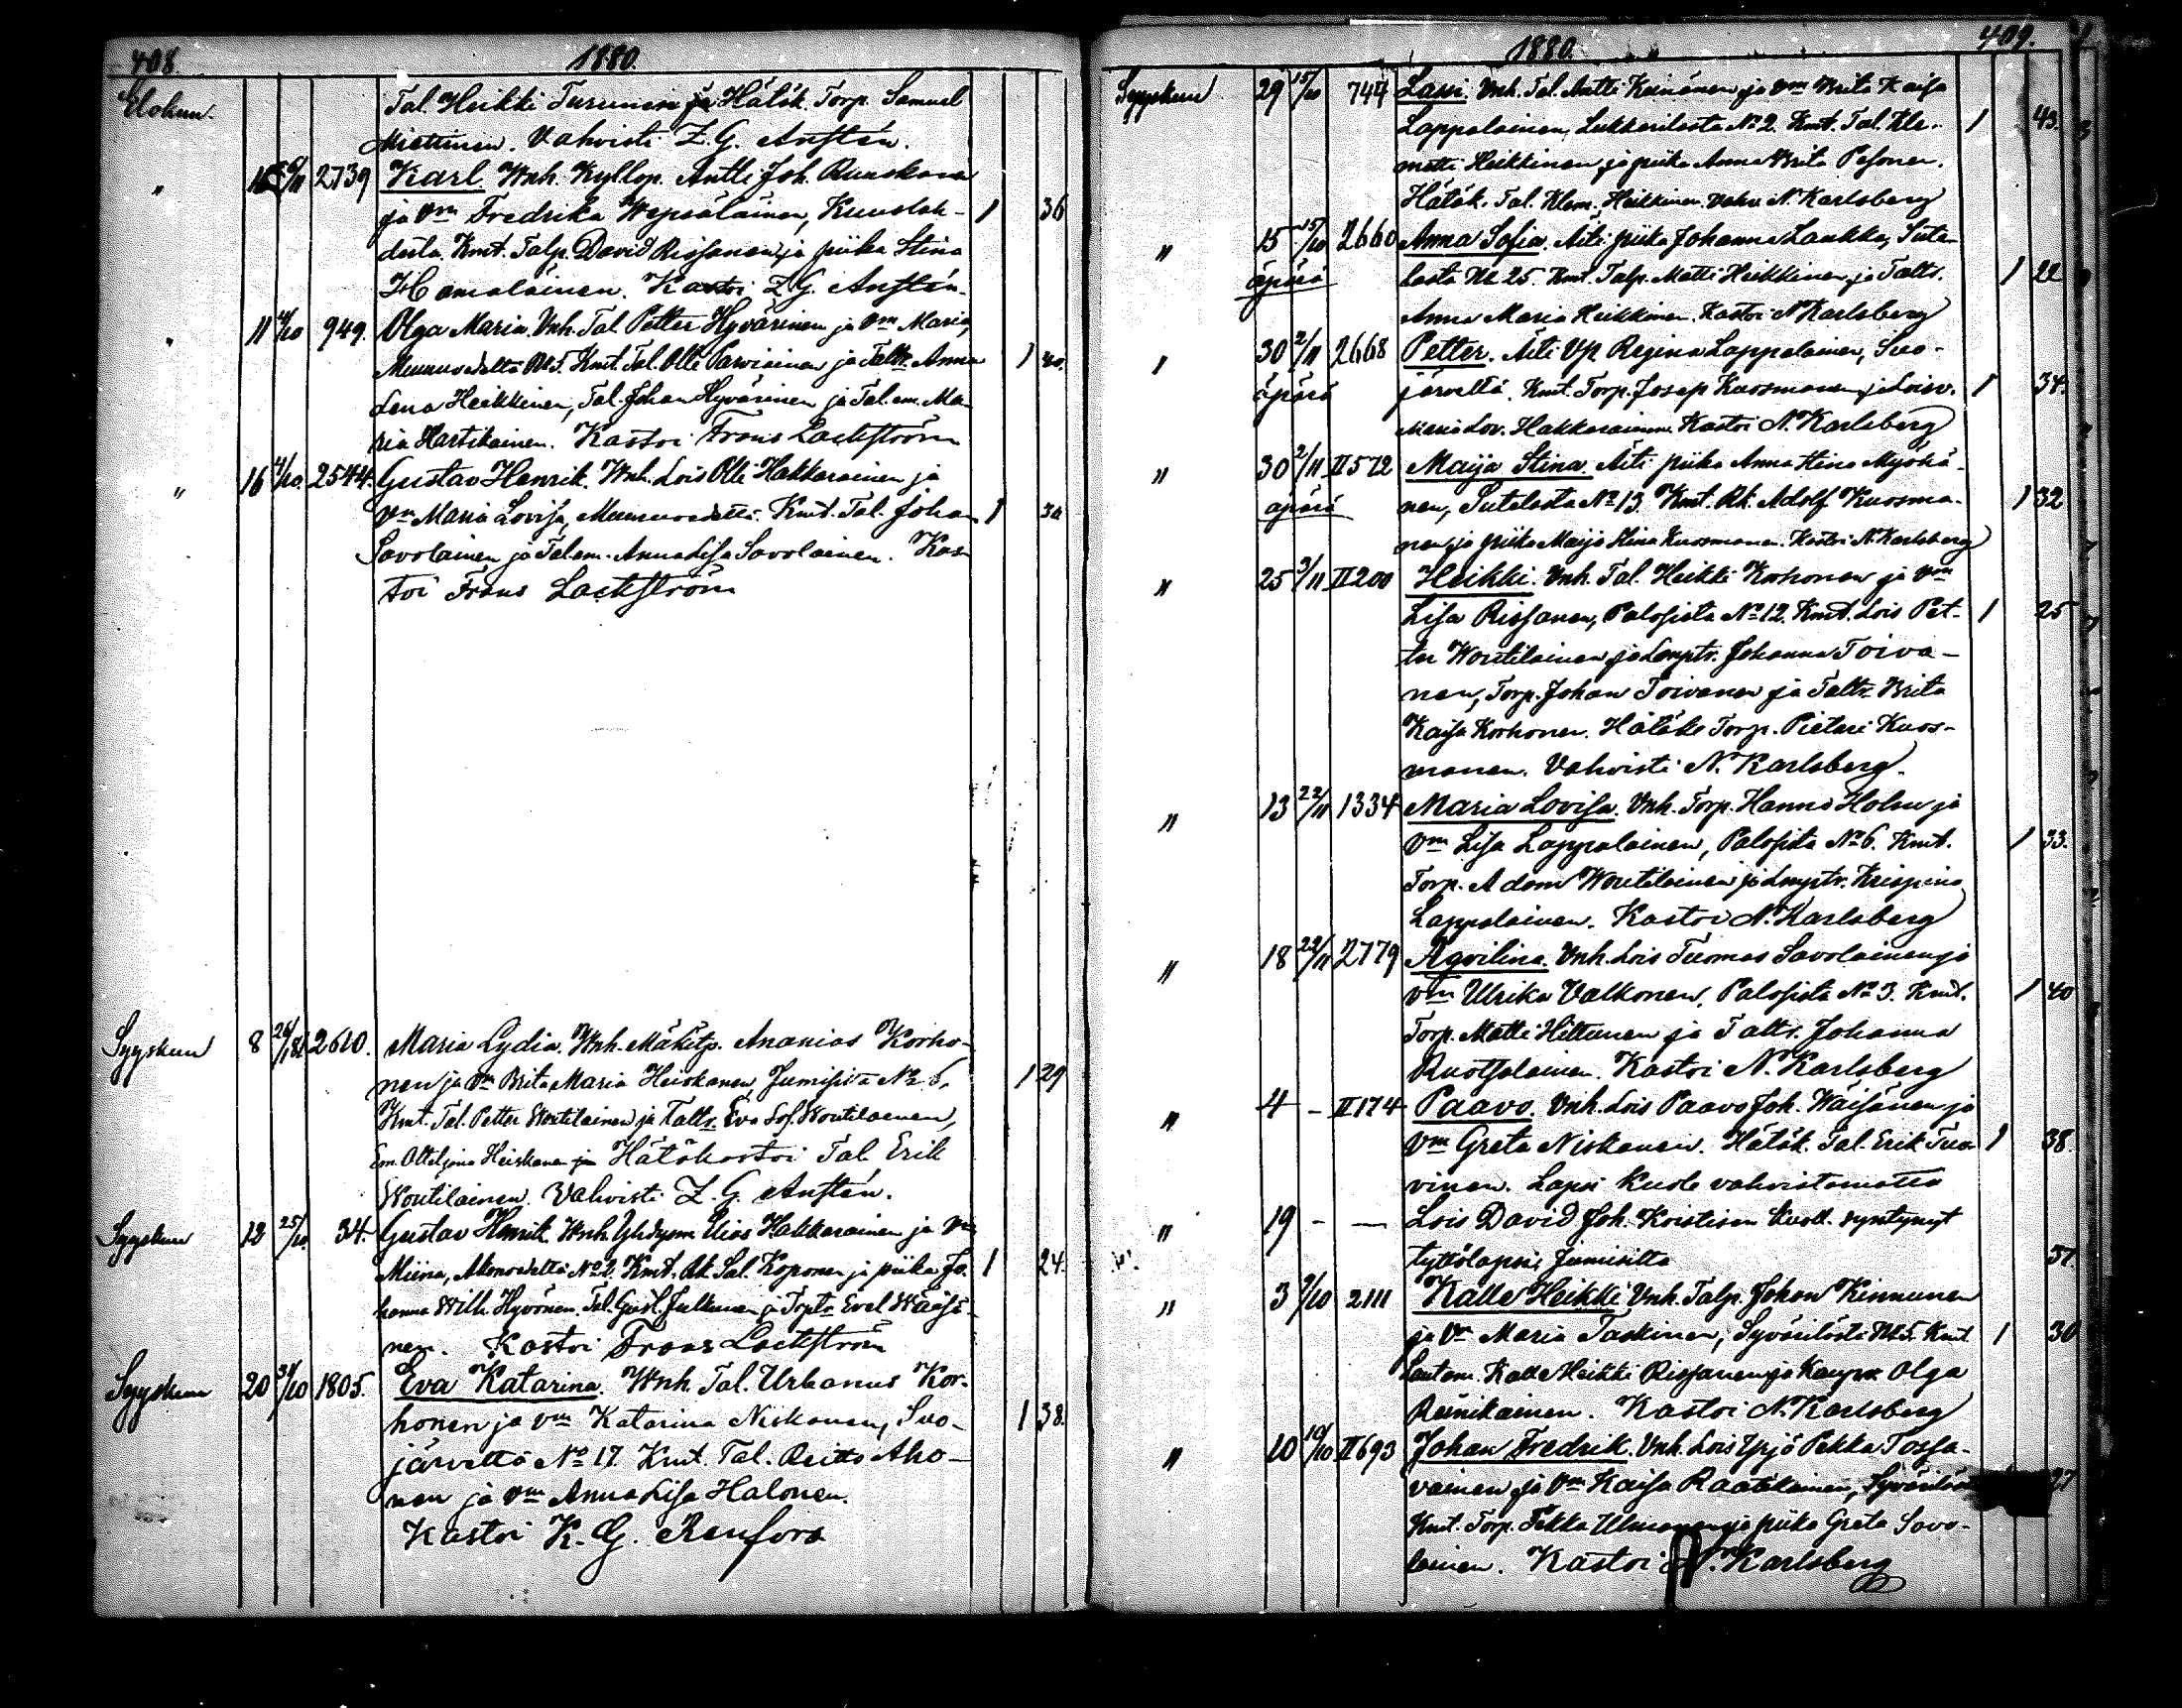 408.
1880.
Elokuu. Tal. Heikki Turunen ja Hätäk. Torp. Samuel
Miettinen. Vahvisti Z. G. Anstén.
" 2739 Karl. Wnh. Kyllop. Antti Joh. Ruuskana
ja Vm Fredrika Wepsäläinen, Kuuslah- 1 36
desta. Kmt. Talp. David Rissanen ja piika Stina
Hämäläinen. Kastoi Z. G. Anstén.
" 11 4/10 949. Olga Maria. Vnh. Tal. Petter Hyvärinen ja Vm Maria,
Muuruvedeltä № 5. Kmt. Tal. Olli Parviainen ja Taltr. Anna 1 40.
Lena Heikkinen, Tal. Johan Hyvärinen ja Tal. em. Ma-
ria Hartikainen. Kastoi Frans Lackström
" 16 4/10. 2544. Gustav Henrik. Wnh. Lois Olli Hakkarainen ja
Vm Maria Lovisa, Muuruvedeltä. Kmt. Tal. Johan 1 30
Savolainen ja Tal. em. Anna Lisa Savolainen. Kas-
toi Frans Lackström
Syyskuu 8 2610. Maria Lydia. Wnh. Mäkitp. Ananias Korho-
nen ja Vm Brita Maria Heiskanen, Juminsita № 6. 1 29
Kmt. Tal. Petter Woutilainen ja Taltr. Eva Sof. Woutilainen,
Em. Ottiljana Heiskanen ja Hätäkastoi Tal. Erik
Woutilainen. Vahvisti Z. G. Anstén.
Syyskuu 12 25/10. 34. Gustav Henrik. Wnh. Yhdysm. Elias Hakkarainen ja Vm
Miina, Akonvedeltä № 6. Kmt. Rk. Sal. Koponen ja piika Jo- 1 24.
hanna Wilh. Hyvönen. Tal. Gust. Julkunen ja Torptr. Evel Wäisä-
nen. Kastoi Frans Lackström
Syyskuu 20 31/10 1805. Eva Katarina. Wnh. Tal. Urbanus Kor-
honen ja Vm Katarina Niskanen, Suo- 1 38.
järveltä № 17. Kmt. Tal. Reitto Aho-
nen ja Vm Anna Lisa Halonen.
Kastoi K. G. Renfors
1880. 409.
Syyskuu 29 15/10 744 Lassi. Vnh. Tal. Antti Keinänen ja Vm Brita Kaisa
Lappalainen, Lukkarilasta № 2. Kmt. Tal. Kle- 1 43.
metti Heikkinen ja piika Anna Brita Pesonen.
Hätäk. Tal. Klem. Heikkinen. Vahv. N. Karlsberg
" 15 15/10 2660 Anna Sofia. Äiti piika Johanna Laukka, Sute-
äpärä lasta № 25. Kmt. Talp. Matti Heikkinen ja Taltr. 1 22
Anna Maria Heikkinen. Kastoi N. Karlsberg
" 30 2/11 2668 Petter. Äiti Vp. Regina Lappalainen, Suo-
äpärä järveltä. Kmt. Torp. Josep Kuosmanen ja Loisv. 1 34.
Maria Lov. Hakkarainen. Kastoi N. Karlsberg
" 30 2/11 II 572 Maija Stina. Äiti piika Anna Stina Myöhä-
äpärä nen, Sutelasta № 13. Kmt. Rk. Adolf Kuosma- 1 32
nen ja piika Maija Stina Kuosmanen. Kastoi N. Karlsberg
" 25 3/11 II 200 Heikki. Vnh. Tal. Heikki Korhonen ja Vm
Lisa Rissanen, Palosista № 12. Kmt. Lois Pet- 1 25
ter Woutilainen ja Lmptr. Johanna Toiva-
nen, Torp. Johan Toivanen ja Taltr. Brita
Kaisa Korhonen. Hätäk. Torp. Pietari Kuos-
manen. Vahvisti N. Karlsberg.
" 13 22/11 1334 Maria Lovisa. Vnh. Torp. Hannu Holm ja
Vm Lisa Lappalainen, Palosista № 6. Kmt. 1 33.
Torp. Adam Woutilainen ja Lmptr. Krispina
Lappalainen. Kastoi N. Karlsberg
" 18 22/11 2779 Agvilina. Vnh. Lois Tuomas Savolainen ja
Vm Ulrika Valkonen, Palosista № 3. Kmt. 1 40
Torp. Matti Hiltunen ja Taltr. Johanna
Ruotsalainen. Kastoi N. Karlsberg
" 4 – II 174 Paavo. Vnh. Lois Paavo Joh. Wäisänen ja
Vm Greta Niskanen. Hätäk. Tal. Erik Tuo- 1 38.
vinen. Lapsi kuole vahvistamatta
" 19 – — Lois David Joh. Koistisen kuoll. syntynyt
tyttölapsi, Jumisilta 37.
" 3 9/10 2111 Kalle Heikki. Vnh. Talp. Johan Kinnunen
ja Vm Maria Taskinen, Syvärilästä № 5. Kmt. 1 30
Lautam. Kalle Heikki Rissanen ja Olga
Reinikainen. Kastoi N. Karlsberg
" 10 10/10 II 693 Johan Fredrik. Vnh. Lois Yrjö Pekka Tossa-
vainen ja Vm Kaisa Raatikainen, Syvärilä 27
Kmt. Torp. Pekka Ulmanen ja piika Greta Savo-
lainen. Kastoi N. Karlsberg